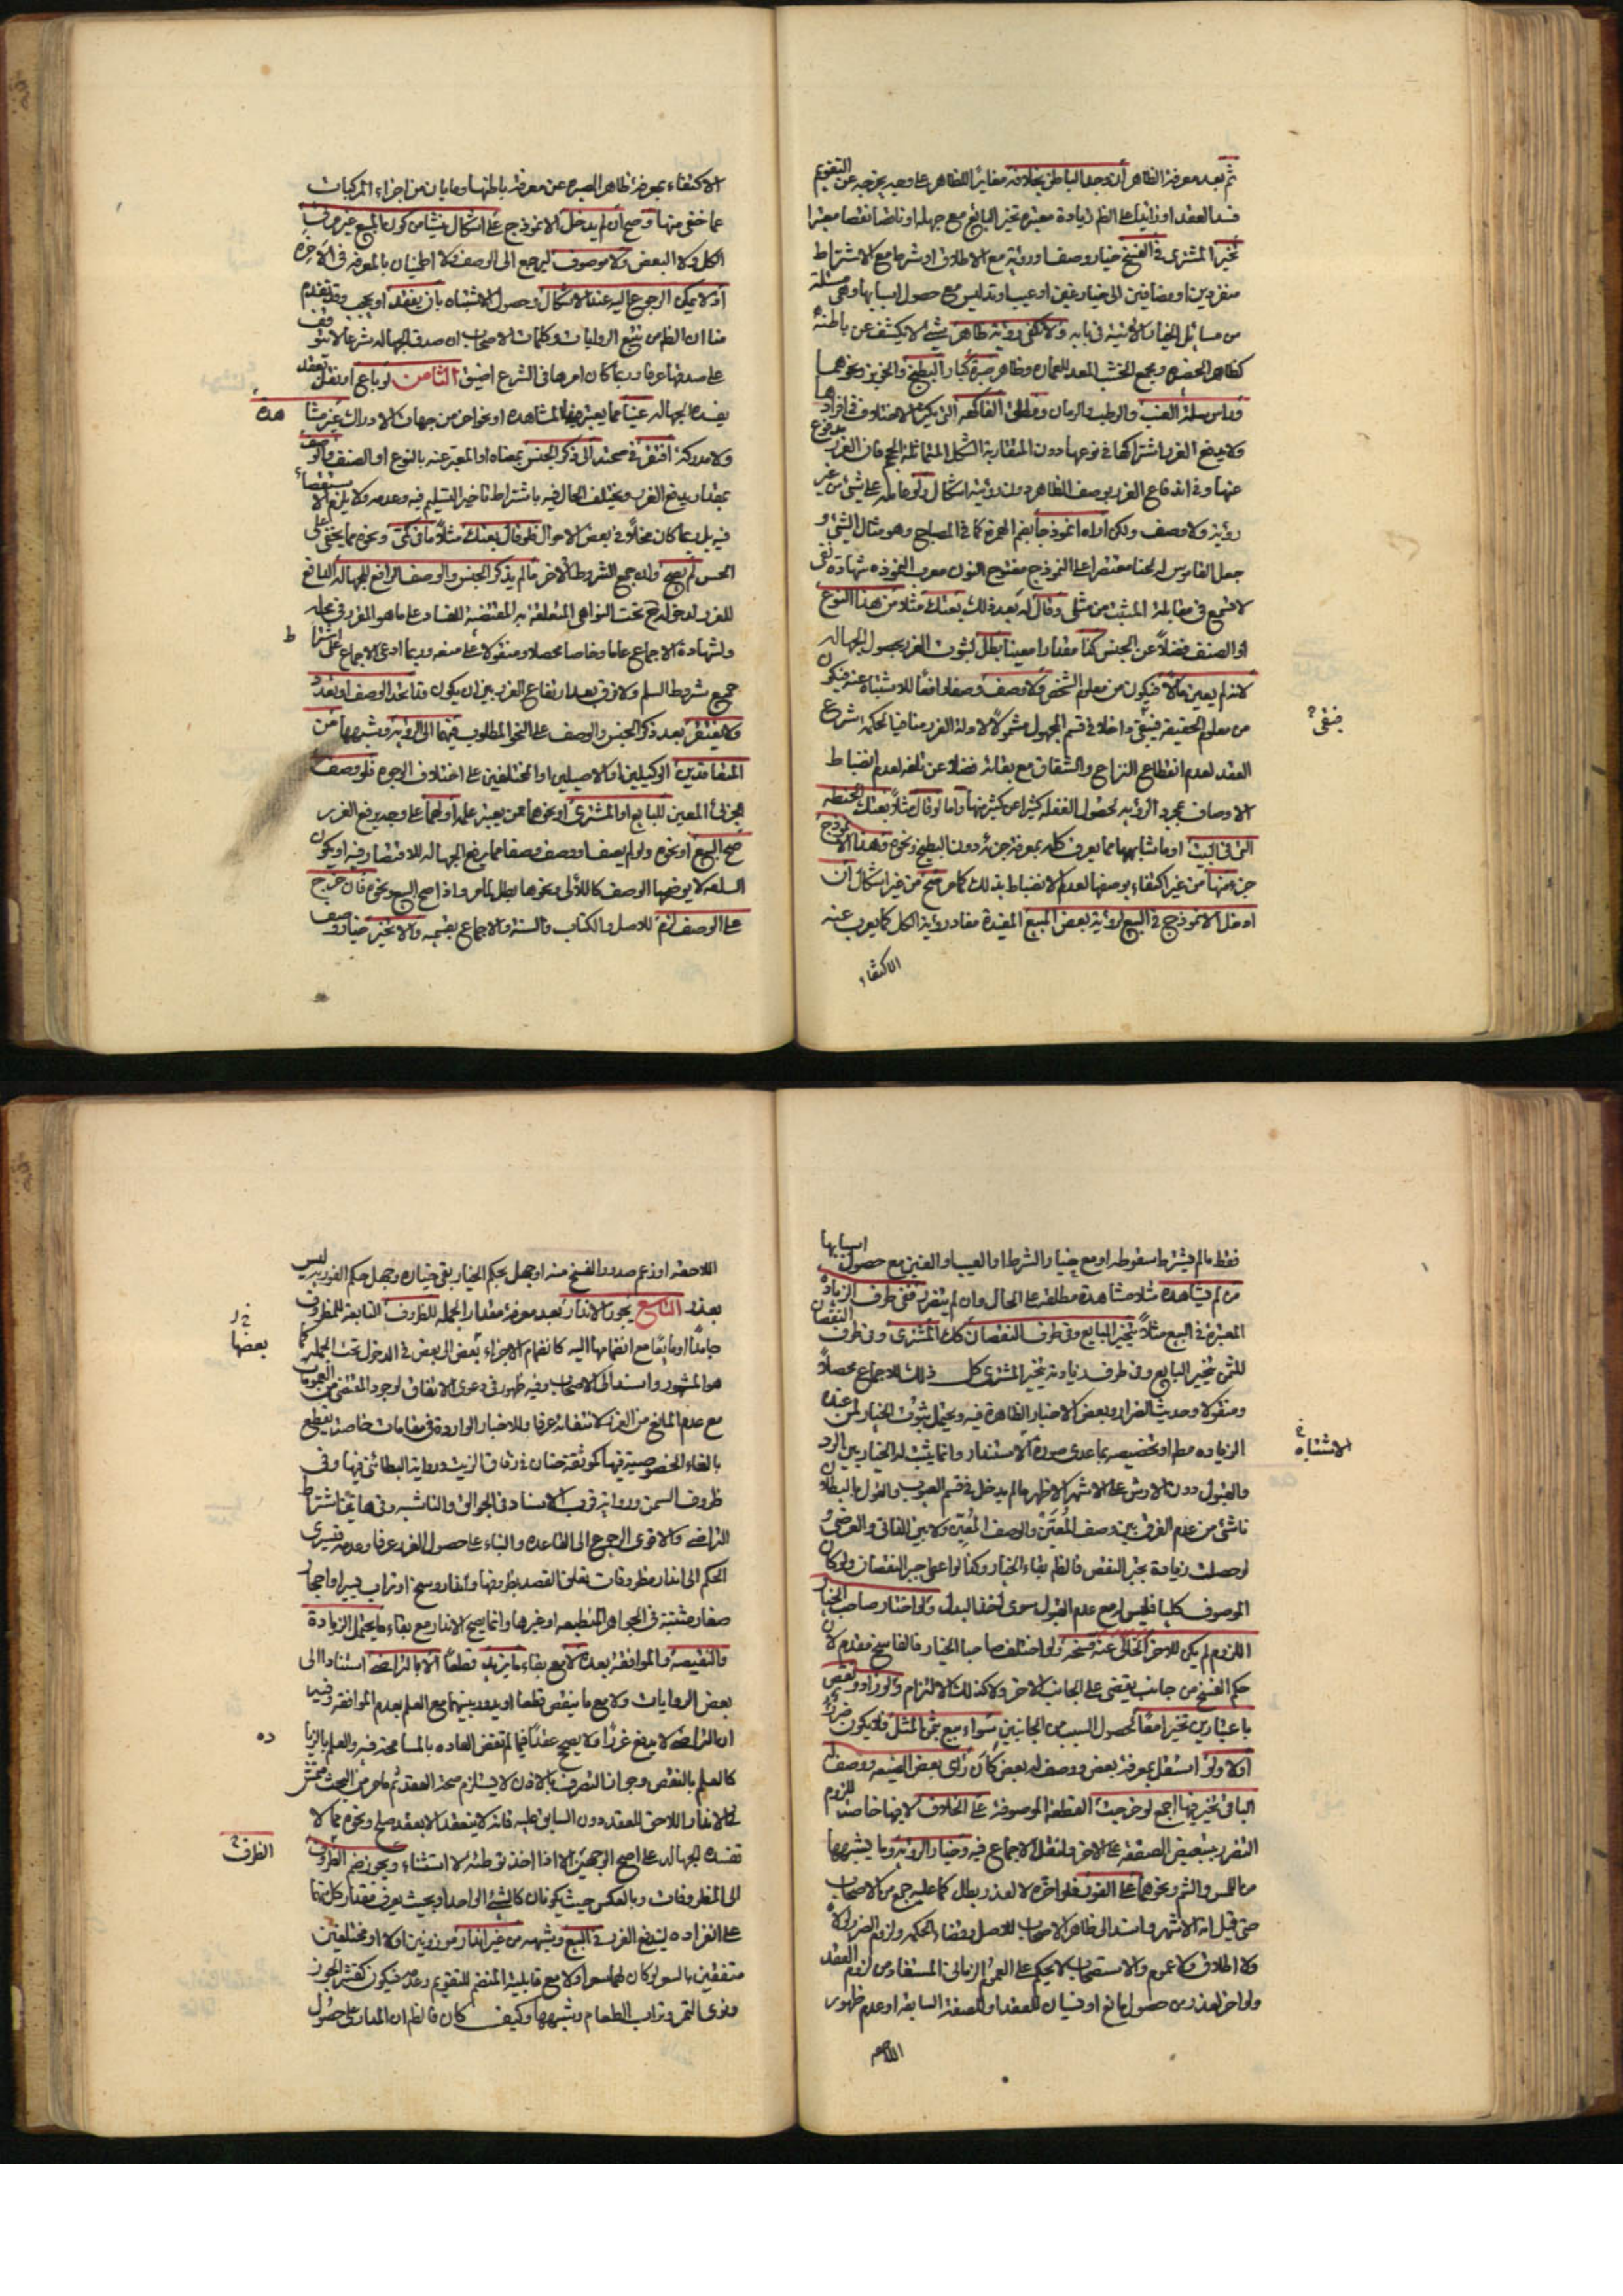 ثم بعد معرفة الظاهر أن وجد الباطن بخلافه مغايرا للظاهر على وجه يخرجه عن التقويم
فسد العقد او زايدا على الظم زيادة معتبرة تخير البايع مع جهله او ناقصا نقصا معتبرا
تخير المشترى فى الفسخ خيار وصف او روية مع الاطلاق او شرط مع الاشتراط
منفردين او مضافين الى خيار غبن او عيب او تدليس مع حصول اسبابها وهى مسئلة
من مسائل الخيار الاتية فى بابه ولا تكفى روية ظاهر شئ لا يكشف عن باطنه
كظاهر الحضره ومجمع الخشب المعد للعمارة وظاهر صبرة كبار البطيخ والخربز ونحوهما
وراس سلة العنب والرطب والرمان ومطلق الفاكهة التى يكثر الاختلاف فى افرادها
ولا يدفع الغرر اشتراكها فى نوعها دون المتقاربة الشكل المتماثلة الحجم فان الغرر مدفوع
عنها وفى اندفاع الغرر بوصف الظاهر دون رؤيته اشكال ولو عامله على شئ من غير
رؤية ولا وصف ولكن أراه أنموذجا بضم الهمزة كما فى المصباح وهو مثال الشئ و
جعل القاموس له لحنا مقتصرا على النموذج مفتوح النون معرب النموذه شهادة نفى
لا تسمع فى مقابلة المثبت من مثلى وقال له بعد ذلك بعتك مثلا من هذا النوع
او الصنف فضلا عن الجنس كذا مقدارا معينا بطل لثبوت الغرر بحصول الجهالة
لانه لم يعين مالا فيكون من معلوم الشخص ولا وصف وصفا رافعا للاشتباه عنه فيكون
من معلوم الحقيقة فيبقى داخلا فى قسم المجهول مشمولا لادلة الغرر منافيا لحكمة شرع
العقد لعدم انقطاع النزاع والشقاق مع بقائه فضلا عن تلفه لعدم انضباط
الاوصاف بمجرد الرؤية لحصول الغفلة كثيرا عن كثير منها واما لو قال مثلا بعتك الحنطة
التى فى البيت او ما شابهها مما يعرف كله بمعرفة جزئه دون البطيخ ونحوه وهذا الانموذج
جزء منها من غير اكتفاء بوصفها لعدم الانضباط بذلك كما مر صح من غير اشكال ان
ادخل الانموذج فى البيع لرؤية بعض المبيع المفيدة مفاد رؤية الكل كما يعرب عنه
الاكتفاء
فيبقى
الاكتفاء بمعرفة ظاهر الصبره عن معرفة باطنها وما بان من اجزاء المركبات
عما خفى منها وصح أن لم يدخل الانموذج على اشكال ينشأ من كون المبيع غير مرئى
الكل ولا البعض ولا موصوف ليرجع الى الوصف ولا اطمينان بالمعرفة فى الآخرة
اذ لا يمكن الرجوع اليه عند الاشكال وحصول الاشتباه بان يفقد او يعيب وقد تقدم
منا ان الظاهر من تتبع الروايات وكلمات الاصحاب ان صدق الجهاله شرعا لا يتوقف
على صدقها عرفا وربما كان امرها فى الشرع اضيق الثامن لو باع او نقل بعقد
يفسده الجهاله عينا مما يعتبر فيها المشاهده او نحوا من جهات الادراك غير مشاهدة
ولا مدركة افتقر فى صحته الى ذكر الجنس بمعناه او المعبر عنه بالنوع او الصنف والوصف
بمقدار يدفع الغرر ويختلف الحال فيه باشتراط تاخير التسليم فيه وعدمه ولا يلزم الاستقصاء
فيه بل ربما كان مخلا فى بعض الاحوال فلو قال بعتك مثلا ما فى كمى ونحوه مما يخفى على
الحس لم يصح وان جمع الشروط الاخر ما لم يذكر الجنس والوصف الرافع للجهاله الدافع
للغرر لدخوله تحت النواهى المتعلقة به المقتضية للفساد على ما هو المقرر فى محله
ولشهادة الاجماع عاما وخاصا محصلا ومنقولا على منعه وربما ادعى الاجماع على اشتراط
جميع شروط السلم ولا فرق بعد ارتفاع الغرر بين ان يكون متحد الوصف او تعدد
ولا يفتقر بعد ذكر الجنس والوصف على النحو المطلوب فيهما الى الروية وشبهها من
المتعاقدين الوكيلين او الاصيلين او المختلفين على اختلاف الوجوه فلو وصف
الجزئى المعين للبايع او المشترى او نحوهما ممن يعتبر علمه او لهما على وجه يدفع الغرر
صح البيع او نحوه ولو لم يصف او وصف وصفا مما يرفع الجهاله للاقتصار فيه او يكون
السلعه لا يوضحها الوصف كاللألى ونحوها بطل لما مر واذا صح البيع ونحوه فان خرج
على الوصف لزم للاصل والكتاب والسنة والاجماع بقسيمه والا تخير خيار وصف
فقط ما لم يشترط سقوطه او مع خيار الشرط او العيب او الغبن مع حصول اسبابها
من لم يشاهده مثلا مشاهدة مطلقة على الحال وان لم يتضرر ففى طرف الزيادة
المعتبرة فى البيع مثلا يتخير البايع وفى طرف النقصان كك المشترى وفى طرف النقصان
للثمن يتخير البايع وفى طرف زيادته يتخير المشترى كل ذلك للاجماع محصلا
ومنقولا وحديث الضرار وبعض الاخبار الظاهرة فيه ويحتمل ثبوت الخيار لمن عنده
الزياده مطم او تخصيصه بما عدى صورة الاستقدار وانما يثبت له الخيار بين الرد
والقبول دون الارش على الاشهر الاظهر ما لم يدخل فى قسم العيوب والقول بالبطلان
ناشئ من عدم الفرق بين وصف المعين والوصف المعين ولا بين الذاتى والعرضى و
لو حصلت زيادة بجبر النقص فالظم بقاء الخيار وكذا لو اعطى جبر النقصان ولو كان
الموصوف كليا فليس له مع عدم القبول سوى اخذ البدل ولو اختار صاحب الخيار
اللزوم لم يكن للاخر الخالى عنه فسخه ولو اختلف صاحبا الخيار فالفاسخ مقدم لان
حكم الفسخ من جانب يقضى على الجانب الاخر ولا كذلك الالتزام ولو زاد ونقص
باعتبارين تخيرا معا لحصول السبب من الجانبين سواء بيع بثمن المثل فلا يكون ضرر
اولا ولو استقل بمعرفة بعض ووصف له بعض كان رأى بعض الضيعه ووصف له
الباقى تخير فيها اجمع لو خرجت القطعة الموصوفة على الخلاف لا فيها خاصة للزوم
التضرر بتبعيض الصفقة على الاخر ولنقل الاجماع فيه وخيار الرؤية وما يشبهها
من اللمس والشم ونحوهما على الفور فلو اخره لا لعذر بطل كما عليه جمع من الاصحاب
حتى قيل انه الاشهر واسند الى ظاهر الاصحاب للاصل وقضاء الحكمه ولزوم الضرر لولاه
ولا اطلاق ولا عموم والاستصحاب لا يحكم على العموم الزمانى المستفاد من لزوم العقد
ولو اخر لعذر من حصول مانع او نسيان للعقد او للصفة السابقة او عدم ظهور
الاشتباه
اللاحقه او زعم صدور الفسخ منه او جهل بحكم الخيار بقى خياره وجهل حكم الفوريه ليس
بعذر التاسع يجوز الاندار بعد معرفة مقدار الجمله للظروف التابعة للمظروف
جامدا او مايعا مع انضمامها اليه كانضمام الاجزاء بعض الى بعض فى الدخول تحت الجمله كما
هو المشهور واسند الى الاصحاب وفيه ظهور فى دعوى الاتفاق لوجود المقتضى من العمومات
مع عدم المانع من الغرر لانتفائه عرفا وللاخبار الواردة فى مقامات خاصة يقطع
بالغاء الخصوصية فيها كموثقة حنان فى زقاق الزيت ورواية البطائنى فيها وفى
ظروف السمن ورواية قرب الاسناد فى الجوالق والناسيه وفى هاتين اشتراط
التراضى والاقوى الرجوع الى القاعده والبناء على حصول الغرر عرفا وعدمه فيسرى
الحكم الى اندار مظروفات يتعلق القصد بظروفها واندار وسخ او تراب يسير او احجار
صغار مثبتة فى الجواهر المنطبعه او غيرها وانما يصح الاندار مع بقاء ما يحتمل الزيادة
والنقيصة والموافقة بعده لا مع بقاء ما يزيد قطعا الا بالتراضى استنادا الى
بعض الروايات ولا مع ما ينقص قطعا او يدور بينهما مع العلم بعدم الموافقة وفيه
ان التراضى لا يدفع غررا ولا يصحح عقدا فيما لم تقض العاده بالمسامحة فيه والعلم بالزيادة
كالعلم بالنقص وجواز التصرف بالاذن لا يستلزم صحة العقد ثم ما مر من البحث متمش
فى الاندار اللاحق للعقد دون السابق عليه فانه لا ينعقد الا بعقد صلح ونحوه مما لا
تفسده الجهاله على اصح الوجهين الا اذا اخذ توطئة لاستثناء ويجوز ضم الظروف
الى المظروفات وبالعكس حيث يكونان كالشئ الواحد او بحيث يعرف مقدار كل منهما
على انفراده ليندفع الغرر فى البيع وشبهه من غير اندار موزونين اولا او مختلفين
متفقين بالسعر لو كان لهما سعر اولا مع قابلية المنضم للتقويم وعدمه فيكون كقشر الجوز
ونوى التمر وتراب الطعام وشبهها وكيف كان فالظم ان المدار على حصول
بعضها
الظرف